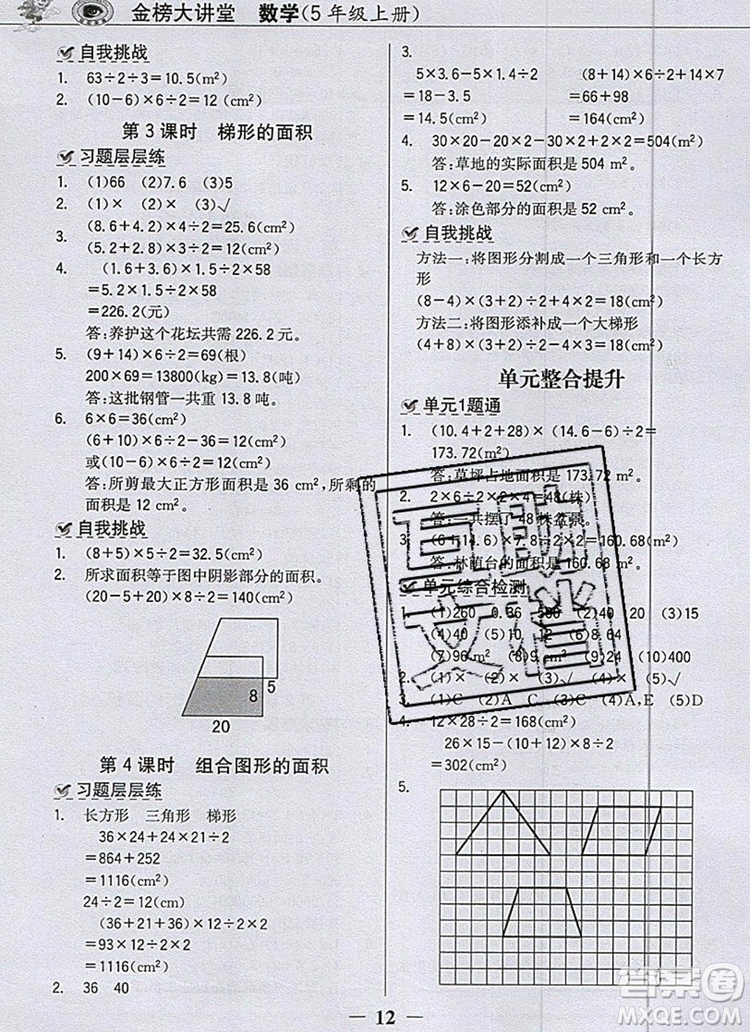 金榜大讲堂 数学(5年级上册)
自我挑战
1. 63÷2÷3=10.5(m²)
2. (10-6)×6÷2=12(cm²)
第3课时 梯形的面积
习题层层练
1. (1)66 (2)7.6 (3)5
2. (1)× (2)× (3)√
3. (8.6+4.2)×4÷2=25.6(cm²)
(5.2+2.8)×3÷2=12(cm²)
4. (1.6+3.6)×2÷2×58
=5.2×1.5÷2×58
=226.2(元)
答:养护这个花坛共需 226.2 元.
5. (9+14)×6÷2=69(根)
200×69=13800(kg)=13.8(吨)
答:这批钢管一共重 13.8 吨.
6. 6×6=36(cm²)
(6+10)×6÷2-36=12(cm²)
或(10-6)×6÷2=12(cm²)
答:所剪最大正方形面积是 36 cm²,所剩的
面积是 12 cm².
自我挑战
1. (8+5)×5÷2=32.5(cm²)
2. 所求面积等于图中阴影部分的面积.
(20-5+20)×8÷2=140(cm²)
5
8
20
第4课时 组合图形的面积
习题层层练
1. 长方形 三角形 梯形
36×24+24×21÷2
=864+252
=1116(cm²)
24÷2=12(cm)
(36+21+36)×12÷2×2
=93×12÷2×2
=1116(cm²)
2. 36 40
3.
5×3.6-5×1.4÷2 (8+14)×6÷2+14×7
=18-3.5 =66+98
=14.5(cm²) =164(cm²)
4. 30×20-20×2-30×2+2×2=504(m²)
答:草地的实际面积是 504 m².
5. 12×6-20=52(cm²)
答:涂色部分的面积是 52 cm².
自我挑战
方法一:将图形分割成一个三角形和一个长方
形
(8-4)×(3+2)÷2+4×2=18(cm²)
方法二:将图形添补成一个大梯形
(4+8)×(3+2)÷2-4×3=18(cm²)
单元整合提升
单元1题通
1. (10.4+2+28)×(14.6-6)÷2=
173.72(m²)
答:草坪占地面积是 173.72 m².
2. 2×6÷2×2×2×2=48(株)
答:一共摆了 48 株盆景.
3. (6+14.6)×7.8÷2×2=160.68(m²)
答:林荫台的面积是 160.68 m².
单元综合检测
1. (1)260 0.36 580 (2)40 20 (3)15
(4)40 (5)10 12 (6)8.64
(7)96 m² (8)30 (9)24 (10)400
2. (1)× (2)× (3)√ (4)× (5)√
3. (1)C (2)A、C (3)C (4)A、E (5)D
4. 12×28÷2=168(cm²)
26×15-(12+10)×8÷2
=302(cm²)
5.
互助文惜
答案圈
MXQE.COM
12